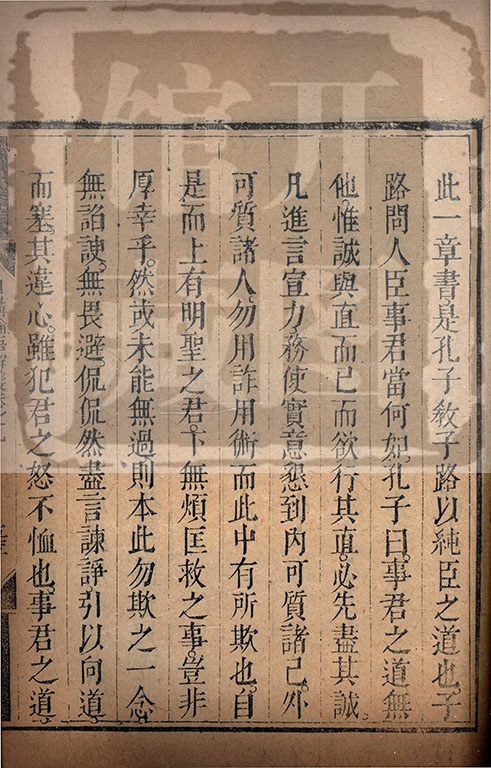 此一章書是孔子教子路以純臣之道也。子
路問人臣事君當何如。孔子曰。事君之道無
他。惟誠與直而已而欲行其直。必先盡其誠。
凡進言宣力務使實意懇到內可質諸己。外
可質諸人。勿用詐用術而此中有所欺也。自
是而上有明聖之君。下無煩匡救之事。豈非
厚幸乎。然或未能無過。則本此勿欺之一念
無諂諛。無畏避。侃侃然盡言諫諍引以向道。
而塞其違心。雖犯君之怒不恤也。事君之道。